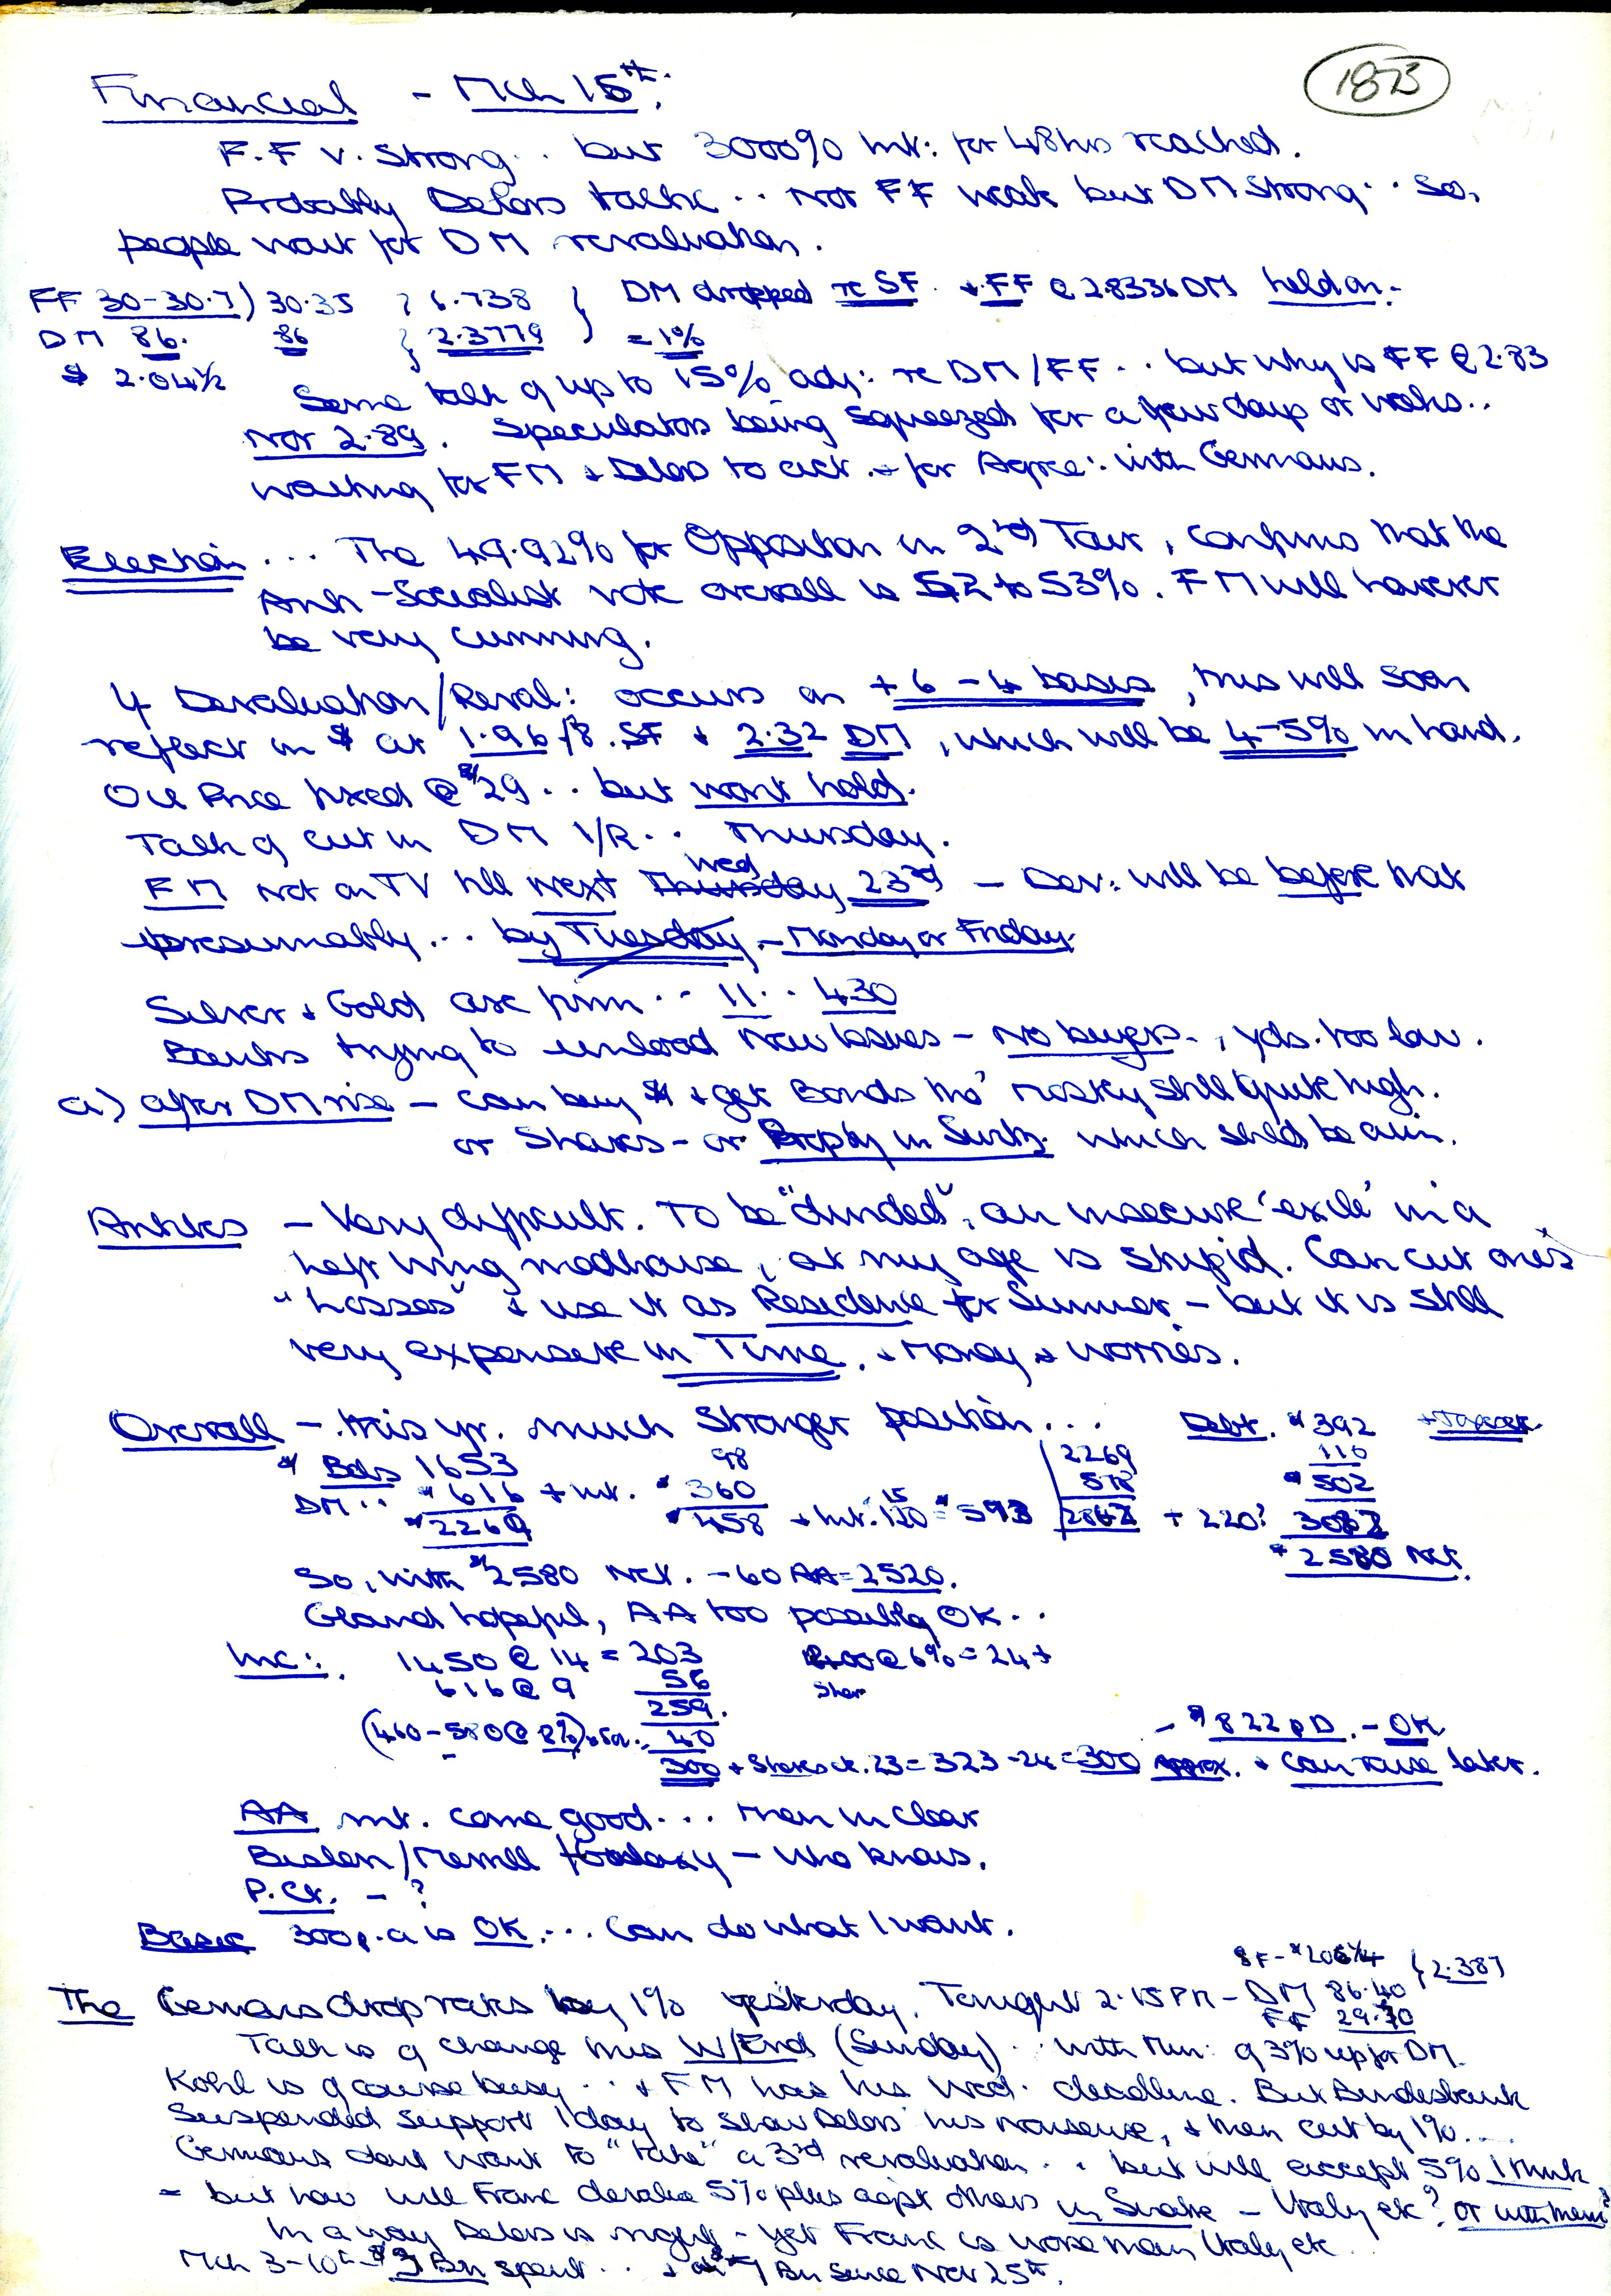 1873
Financial - Mch 15th:
F.F V. Strong.. but 3000% Int: for 48hrs reached.
Probably Delors talk .. Not FF weak but DM strong.. So,
people wait for DM revaluation.
FF 30-30.7) 30.35 } 6.738 } DM dropped re SF. + FF @ 2.8336 DM held on.-
DM 86. 86 } 2.3779 = 1%
$ 2.04½
Some talk of up to 15% adj: re DM/FF... but why is FF @ 2.83
Not 2.89. Speculators being squeezed for a few days or weeks..
waiting for FM + Delors to act. + for Agree: with Germans.
Election ... The 49.92% for Opposition in 2nd Tour, confirms that the
Anti-Socialist vote overall is 52 to 53%. FM will however
be very cunning.
If Devaluation/Reval: occurs on +6 -4 basis, this will soon
reflect in $ at 1.96/8. SF + 2.32 DM, which will be 4-5% in hand.
Oil Price fixed @ $29... but wont hold.
Talk of cut in DM I/R.. Thursday.
FM not on TV till next Thursday Wed 23rd - Dev: will be before that
presumably... by Tuesday - Monday or Friday.
Silver + Gold are firm.. 11.. 430
Banks trying to unload New Issues - no buyers., yds. too low.
a) after DM rise - Can buy $ + get Bonds tho' mostly still quite high.
or Shares - or Propty in Switz. which shld be aim.
Antibes - Very difficult. To be "divided", an insecure 'exile' in a
Left Wing madhouse, at my age is stupid. Can cut one's
"Losses" + use it as Residence for Summer - but it is still
very expensive in Time, + Money + worries.
Overall - this yr. much stronger position... Debt. $392
$ Bds 1653 98 2269 110
DM.. $616 + Int. $360 578 $502
$2269 $458 + Int. 120 15 = $593 2862 + 220? 3082
$2580 Net.
So, with $2580 Net. - 60 AA = 2520.
Gland hopeful, AA too possibly OK..
Inc:. 1450 @ 14 = 203 @ 6% = 24+
616 @ 9 56
259.
(460-580 @ 8%) 40 - $822 pD. - OK
300 + Shares 23 = 323 - 24 = 300 approx. + can raise later.
AA int. come good... then in clear
/Merrill - who knows.
P.Ct. - ?
Basic 300 p.a is OK... Can do what I want.
SF - $206¼ } 2.387
The Germans drop rates by 1% yesterday. Tonight 2.15 PM - DM 86.40
FF 29.70
Talk is of change this W/End (Sunday).. with Min: of 3% up for DM.
Kohl is of course busy.. + FM has his Wed. deadline. But Bundesbank
Suspended support 1 day to show Delors his nonsense, + then cut by 1%...
Germans dont want to "take" a 3rd revaluation.. but will accept 5% I think
- but how will Franc devalue 5% plus agst others in Snake - Italy etc? or with them?
In a way Delors is right - yet Franc is worse than Italy etc
Mch 3-10th $3 Bn spent... Bn Since Nov 25th.